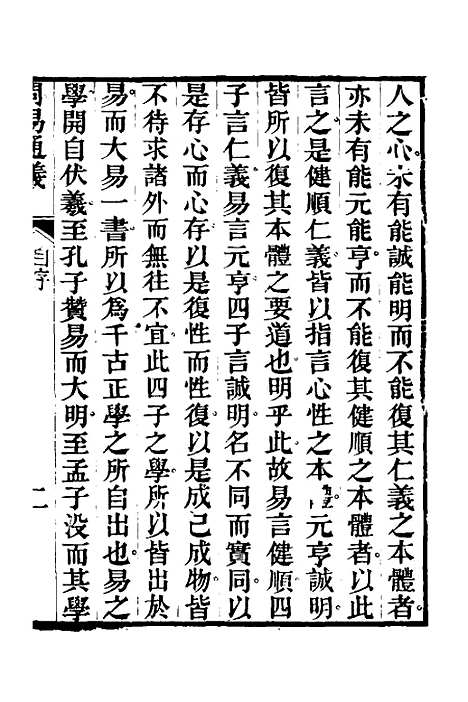 人之心未有能誠能明而不能復其仁義之本體者
亦未有能元能亨而不能復其健順之本體者以此
言之是健順仁義皆以指言心性之本體元亨誠明
皆所以復其本體之要道也明乎此故易言健順四
子言仁義易言元亨四子言誠明名不同而實同以
是存心而心存以是復性而性復以是成己成物皆
不待求諸外而無往不宜此四子之學所以皆出於
易而大易一書所以爲千古正學之所自出也易之
學開自伏羲至孔子贊易而大明至孟子没而其學
周易通義 自序 二